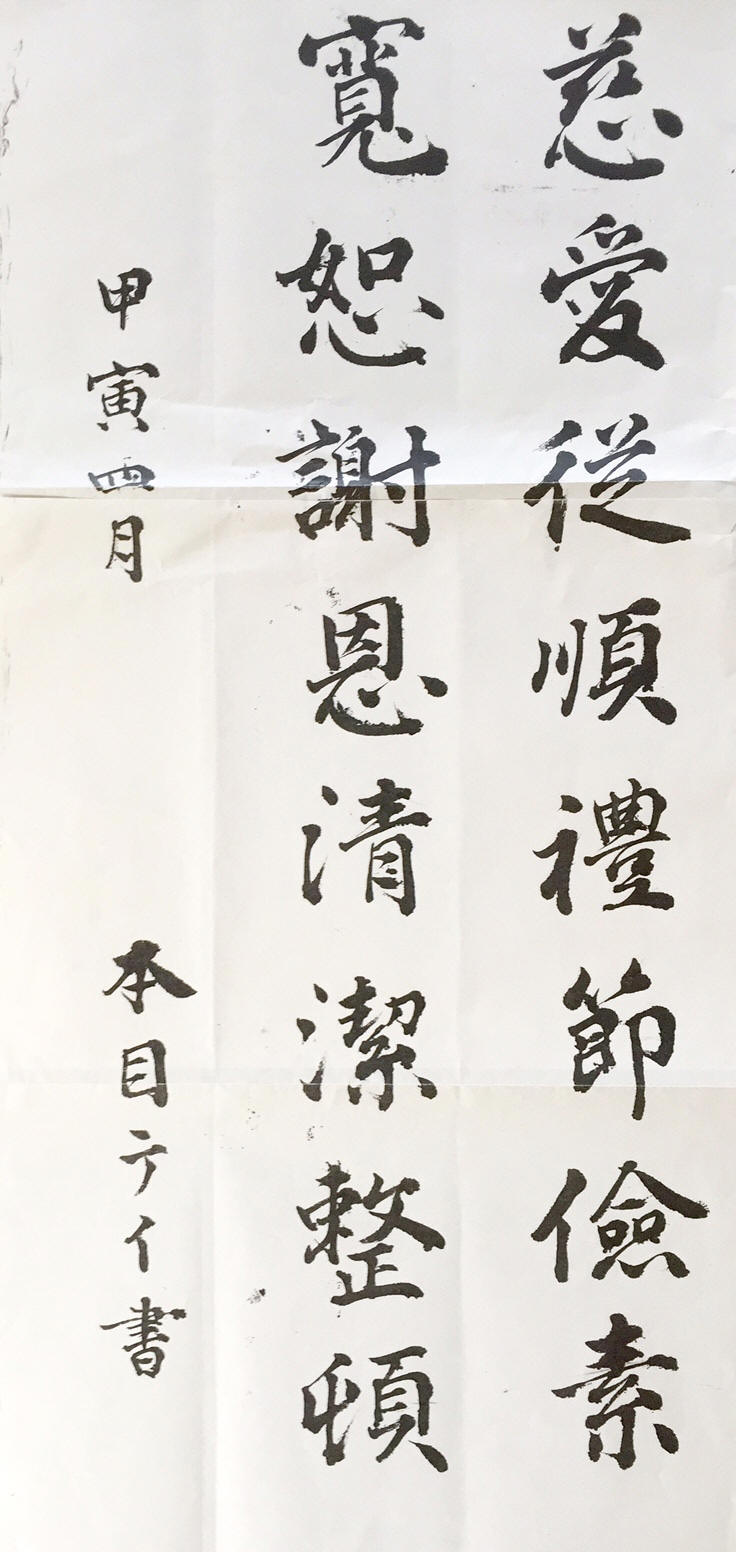 慈愛從順禮節儉素
寬恕謝恩清潔整頓
甲寅四月
本目テイ書